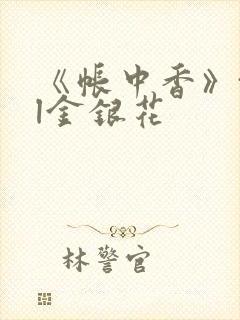 《帐中香》
|金银花
林警官